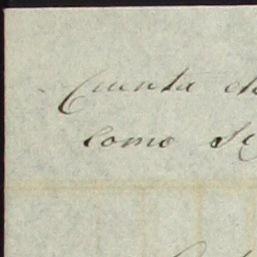 Cuenta de
como se